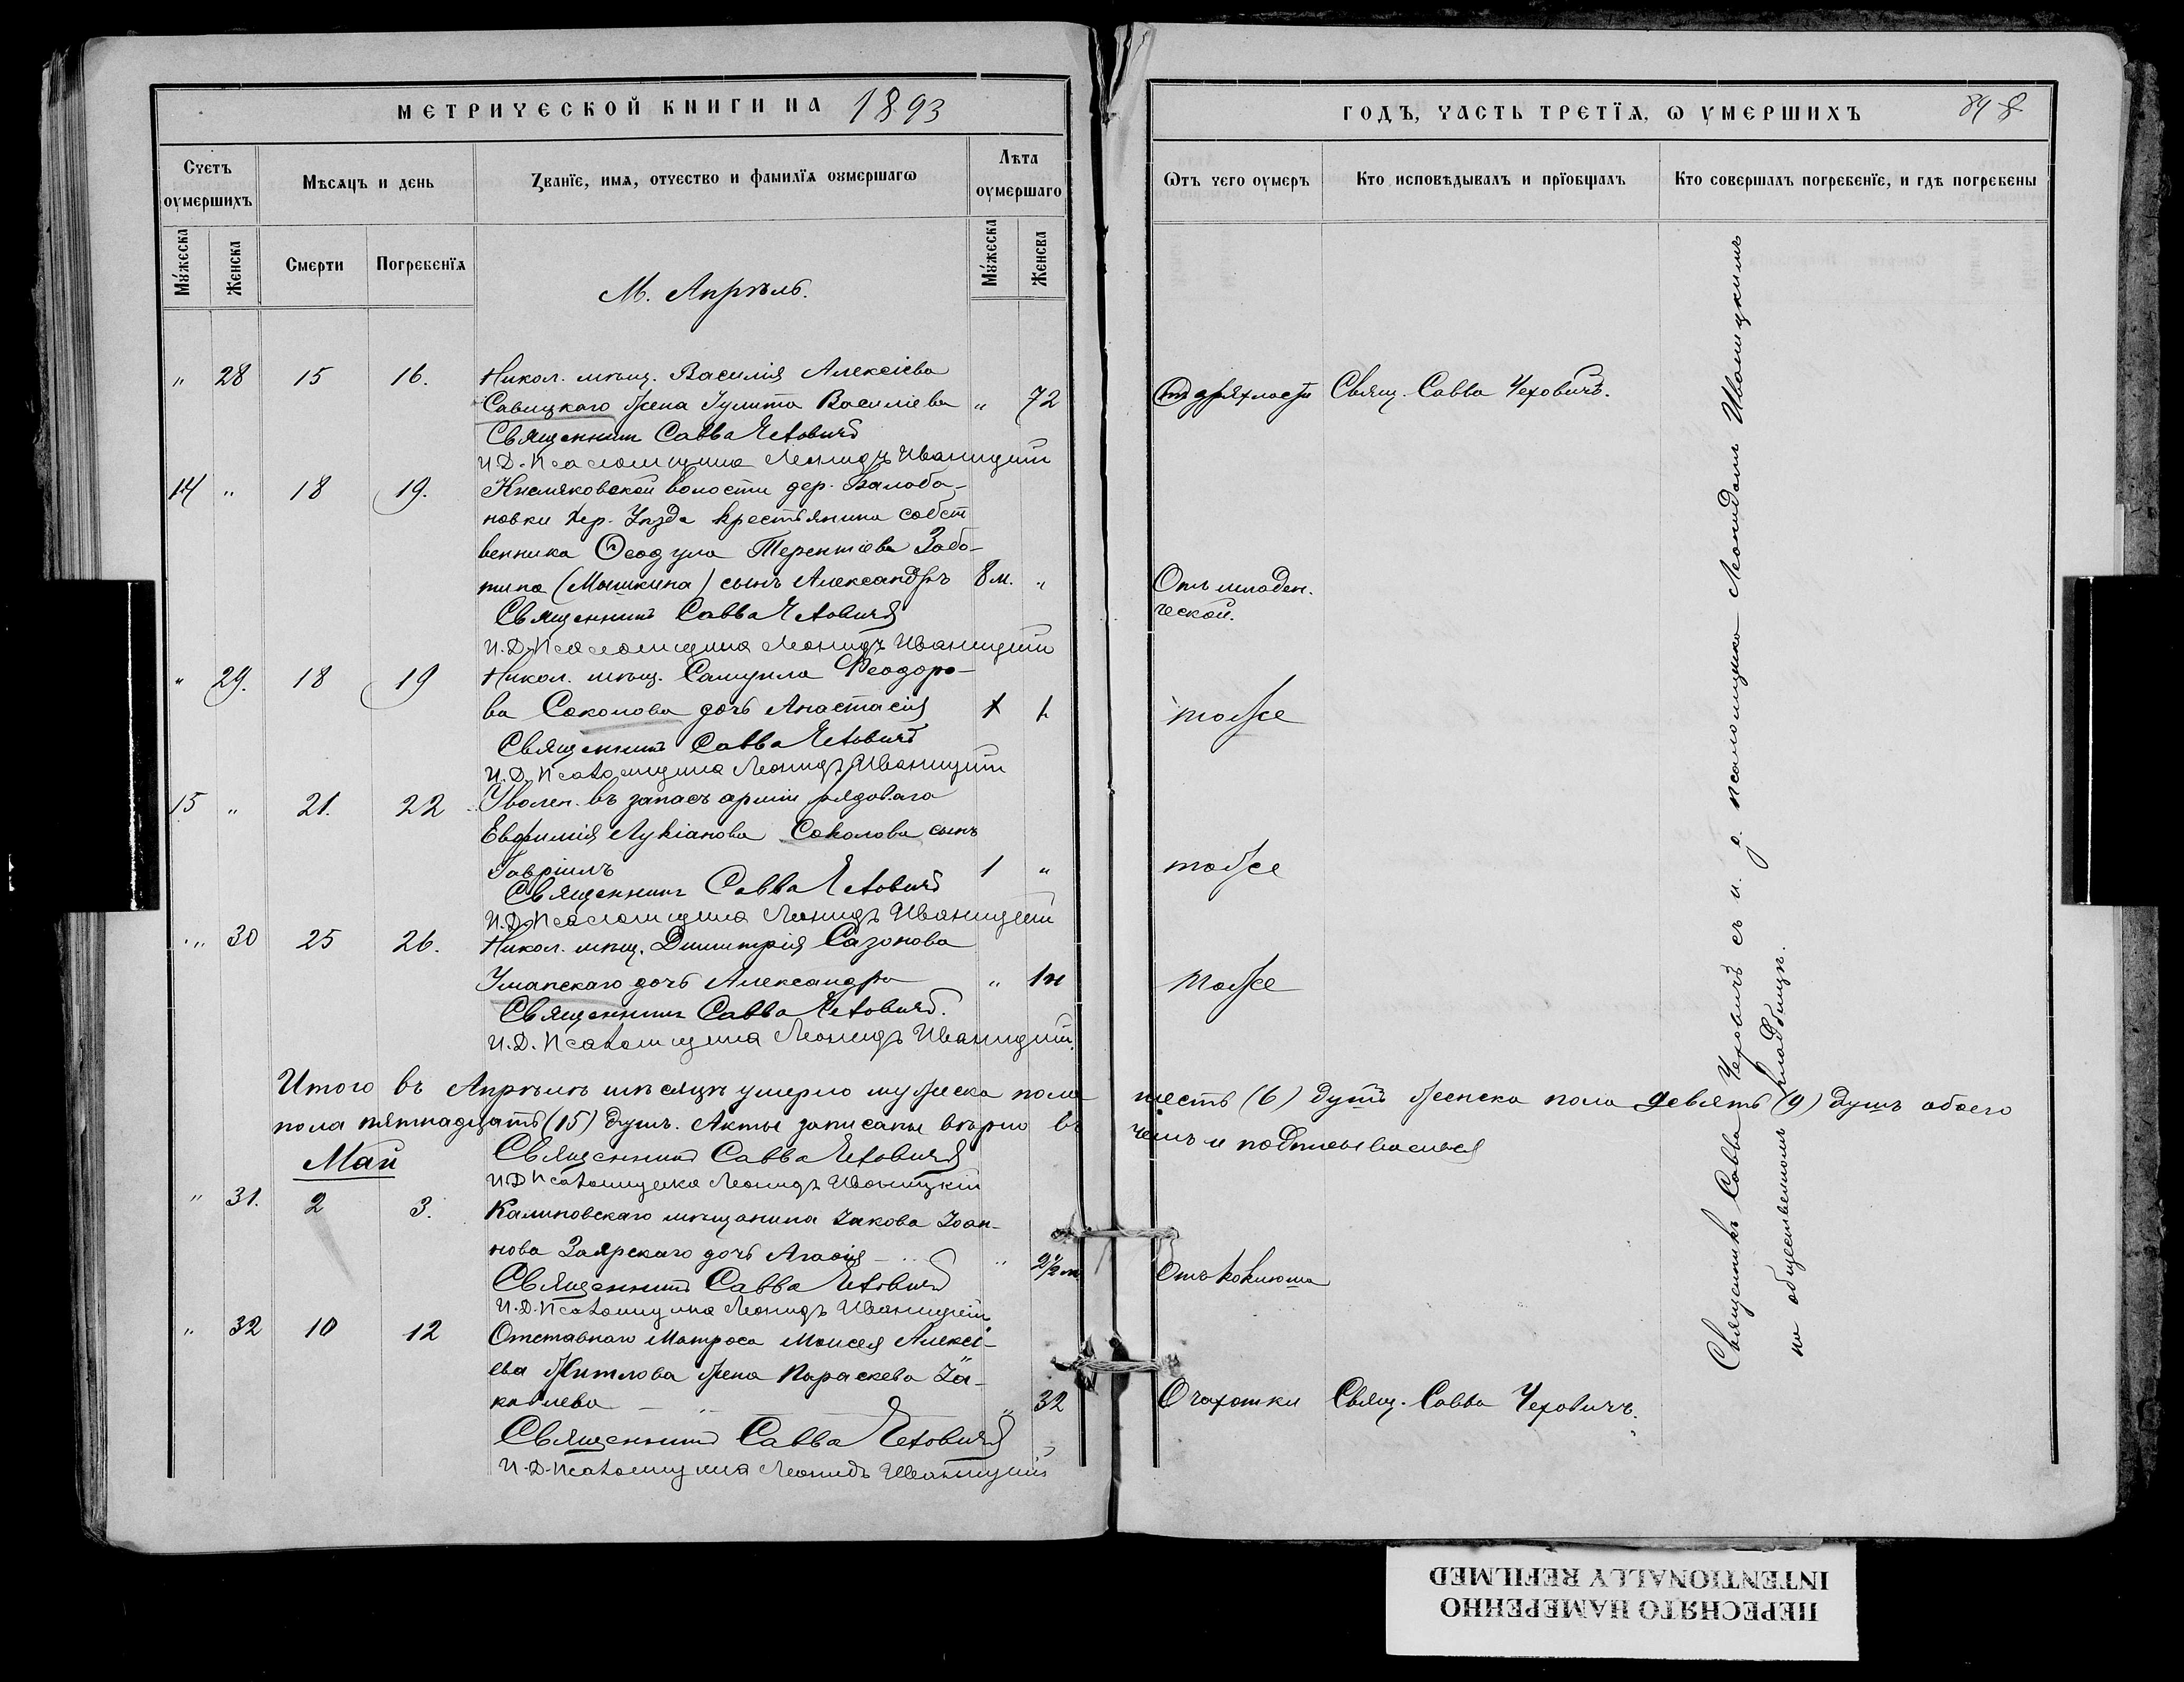 МЕТРИЧЕСКОЙ КНИГИ НА 1893
Счетъ оумершихъ
Мѣсяцъ и день
Званїе, имя, отчество и фамилїя оумершагѡ
Лѣта оумершаго
Мꙋжеска
Женска
Смерти
Погребенїя
Мꙋжеска
Женска
М. Апрѣль.
„ 28 15 16. Никол. мѣщ. Василія Алексіева
Савицкаго жена Іулита Василіева „ 72
Священникъ Савва Чеховичъ
И.Д. Псаломщика Леонидъ Иваницкій
14 „ 18 19. Кисляковской волости дер. Балаба-
новки Хер. Уѣзда крестьянина собст
венника Ѳеодула Терентіева Забо-
тина (Мышкина) сынъ Александръ 8 м. „
Священникъ Савва Чеховичъ
И.Д. Псаломщика Леонидъ Иваницкій
„ 29. 18 19 Никол. мѣщ. Самуила Ѳеодоро-
ва Соколова дочь Анастасія 1 1
Священникъ Савва Чеховичъ
И.Д. Псаломщика Леонидъ Иваницкій
15 „ 21. 22 Уволен. въ запасъ арміи рядоваго
Евфимія Лукіанова Соколова сынъ
Гавріилъ 1 „
Священникъ Савва Чеховичъ
И.Д. Псаломщика Леонидъ Иваницкій
„ 30 25 26. Никол. мѣщ. Димитрія Сазонова
Уманскаго дочь Александра „ 1н
Священникъ Савва Чеховичъ.
И.Д. Псаломщика Леонидъ Иваницкій.
Итого въ Апрѣлѣ мѣсяцѣ умерло мужеска пола
пола пятнадцать (15) душъ. Акты записаны вѣрно въ
Священникъ Савва Чеховичъ
И.Д. Псаломщика Леонидъ Иваницкій
Май
„ 31. 2 3. Калиновскаго мѣщанина Іакова Іоан-
нова Заярскаго дочь Агаѳія „ 2½ м
Священникъ Савва Чеховичъ
И.Д. Псаломщика Леонидъ Иваницкій
„ 32 10 12 Отставнаго Матроса Моисея Алексі-
ева Житлова жена Параскева Іа-
ковлева „ 32
Священникъ Савва Чеховичъ
И.Д. Псаломщика Леонидъ Иваницкій
ГОДЪ, ЧАСТЬ ТРЕТЇЯ, Ѡ УМЕРШИХЪ
Ѿтъ чего оумеръ
Кто исповѣдывалъ и прїобщалъ
Кто совершалъ погребенїе, и гдѣ погребены
Отъ дряхлости Свящ. Савва Чеховичъ.
Отъ младен.
ческой.
тоже
тоже
тоже
шесть (6) душъ женска пола девять (9) душъ обоего
чемъ и подписываемся
Отъ коклюша
О чахотки Свящ. Савва Чеховичъ.
Священникъ Савва Чеховичъ съ и. д. псаломщика Леонидомъ Иваницкимъ
на общественномъ кладбищѣ.
ПЕРЕСНЯТО НАМЕРЕННО
INTENTIONALLY REFILMED